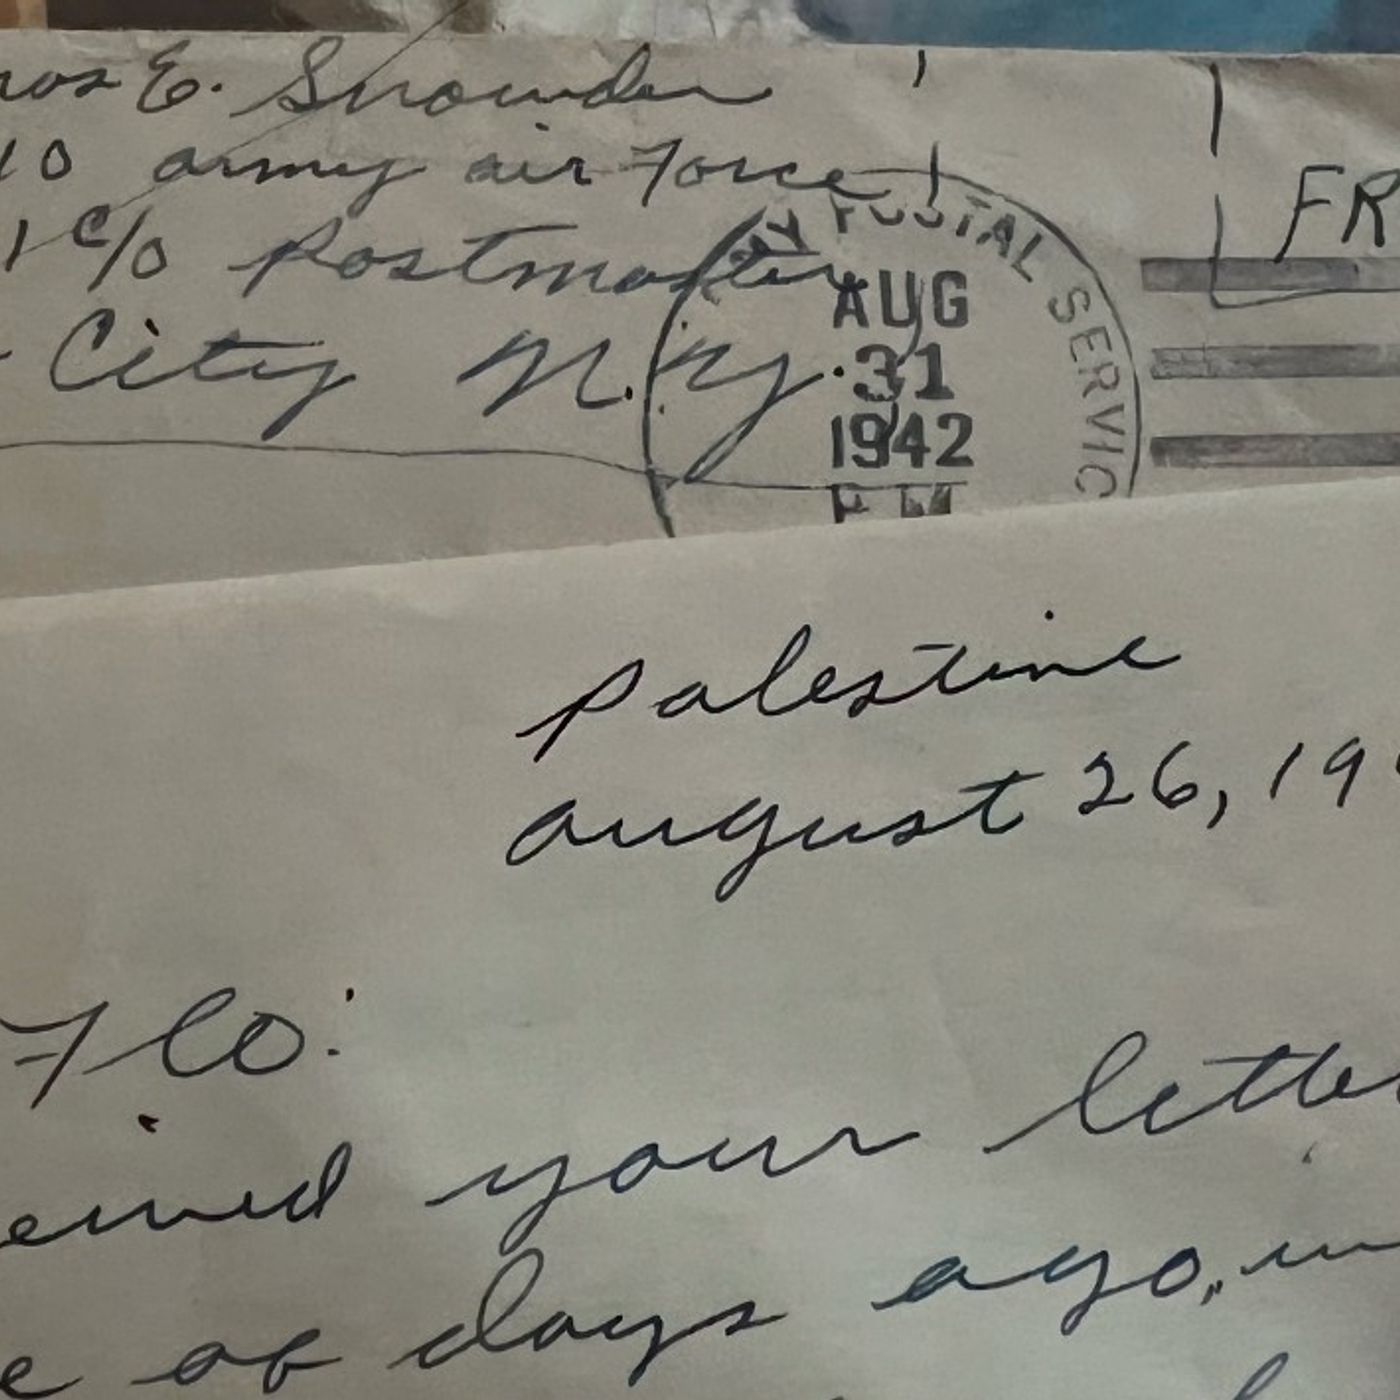 E. Snowden
10 army air Force
1 c/o Postmaster
City N.Y.
POSTAL SERVIC
AUG
31
1942
P M
FR
Palestine
august 26, 19
Flo:
eived your letter
e of days ago, in